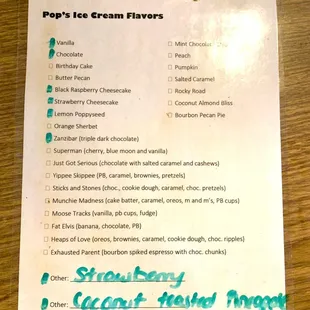 Pop's Ice Cream Flavors
Vanilla
Chocolate
Birthday Cake
Butter Pecan
Black Raspberry Cheesecake
Strawberry Cheesecake
Lemon Poppyseed
Orange Sherbet
Zanzibar (triple dark chocolate)
Mint Chocolate
Peach
Pumpkin
Salted Caramel
Rocky Road
Coconut Almond Bliss
Bourbon Pecan Pie
Superman (cherry, blue moon and vanilla)
Just Got Serious (chocolate with salted caramel and cashews)
Yippee Skippee (PB, caramel, brownies, pretzels)
Sticks and Stones (choc., cookie dough, caramel, choc. pretzels)
Munchie Madness (cake batter, caramel, oreos, m and m's, PB cups)
Moose Tracks (vanilla, pb cups, fudge)
Fat Elvis (banana, chocolate, PB)
Heaps of Love (oreos, brownies, caramel, cookie dough, choc. ripples)
Exhausted Parent (bourbon spiked espresso with choc. chunks)
Other: Strawberry
Other: Coconut toasted Pineapple